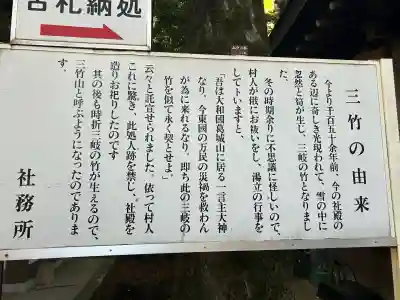 古札納処
三竹の由来
今より千百五十余年前、今の社殿の
ある辺に奇しき光現われて、雪の中に
忽然と筍が生じ、三岐の竹となりまし
た。
冬の時期余りに不思議に怪しいので、
村人が俄にお祓いをし、湯立の行事を
してトいますと、
「吾は大和國葛城山に居る一言主大神
なり、今東國の万民の災禍を救わん
が為に来れるなり、即ち此の三岐の
竹を似て永く契とせよ」
云々と託宣せられました。依って村人
これに驚き、此処人跡を禁じ、社殿を
造りお祀りしたのです
其の後も時折三岐の竹が生えるので、
三竹山と呼ぶようになったのでありま
す。
社務所